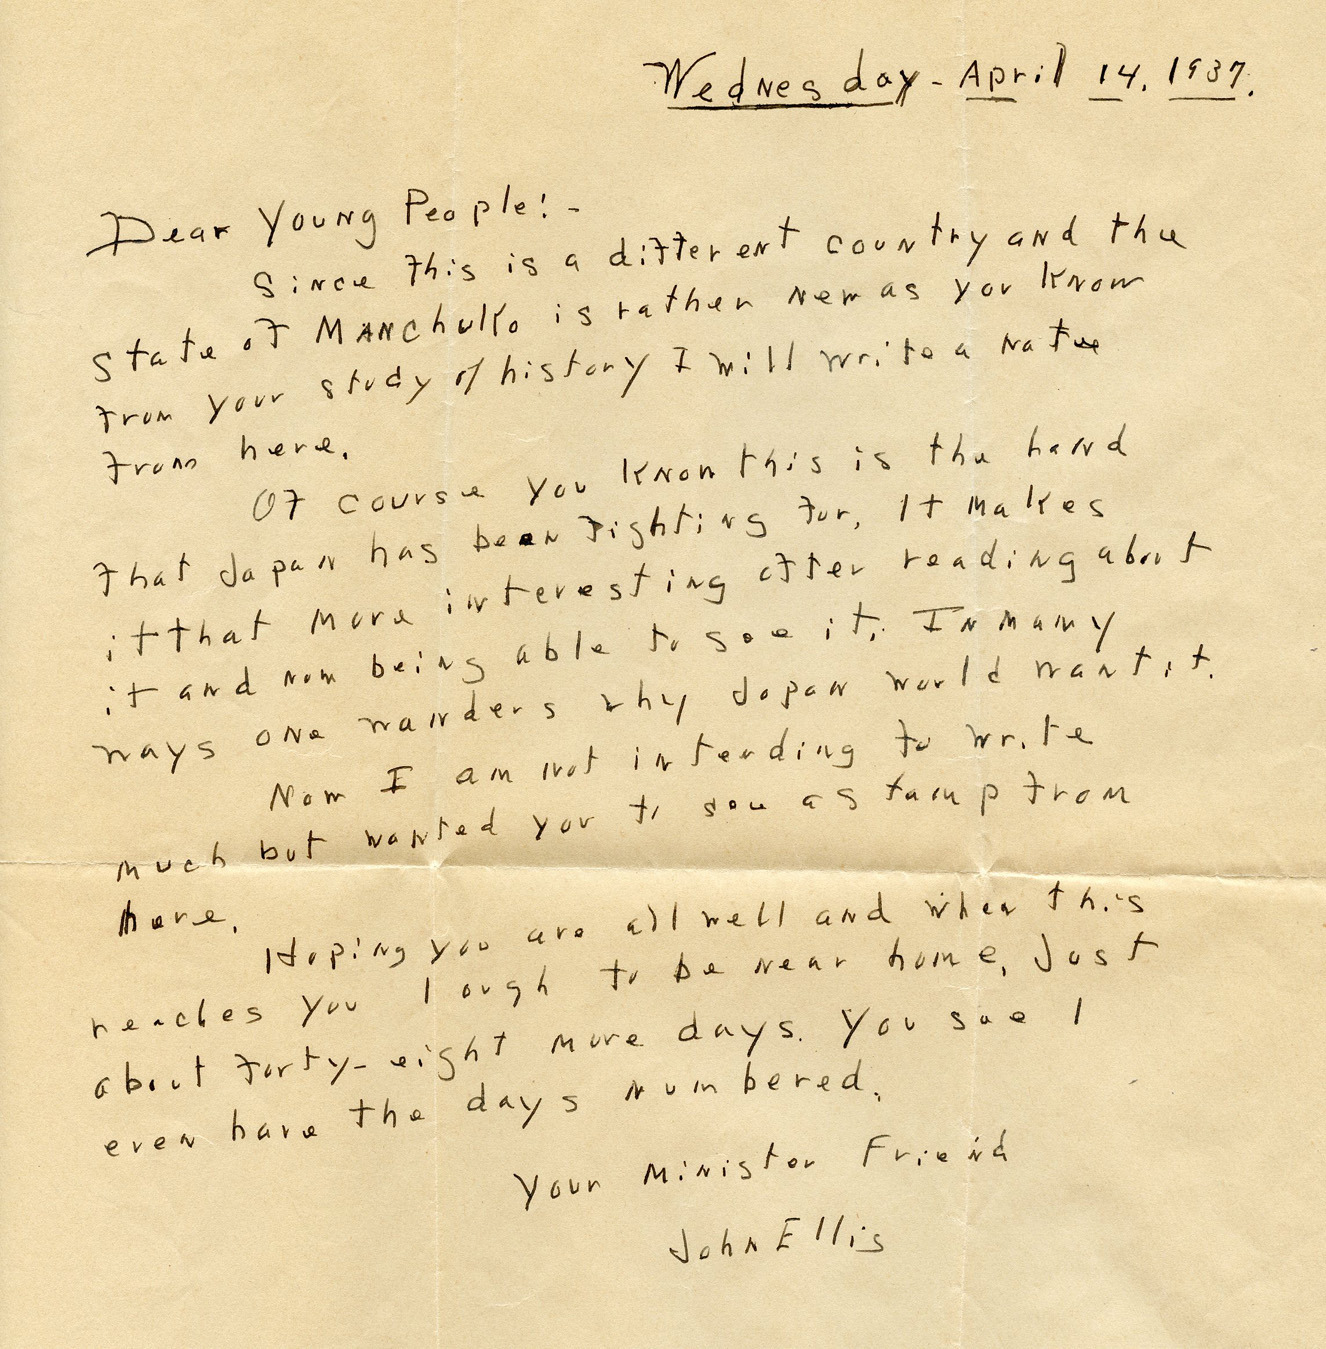 Wednesday - April 14, 1937.
Dear Young People! -
Since this is a different country and the
State of Manchuko is rather new as you know
from your study of history I will write a note
from here.
Of course you know this is the land
that Japan has been fighting for. It makes
it that more interesting after reading about
it and now being able to see it. In many
ways one wanders why Japan would want it.
Now I am not intending to write
much but wanted you to see a stamp from
here.
Hoping you are all well and when this
reaches you I ough to be near home. Just
about forty-eight more days. You see I
even have the days numbered.
Your Minister Friend
John Ellis